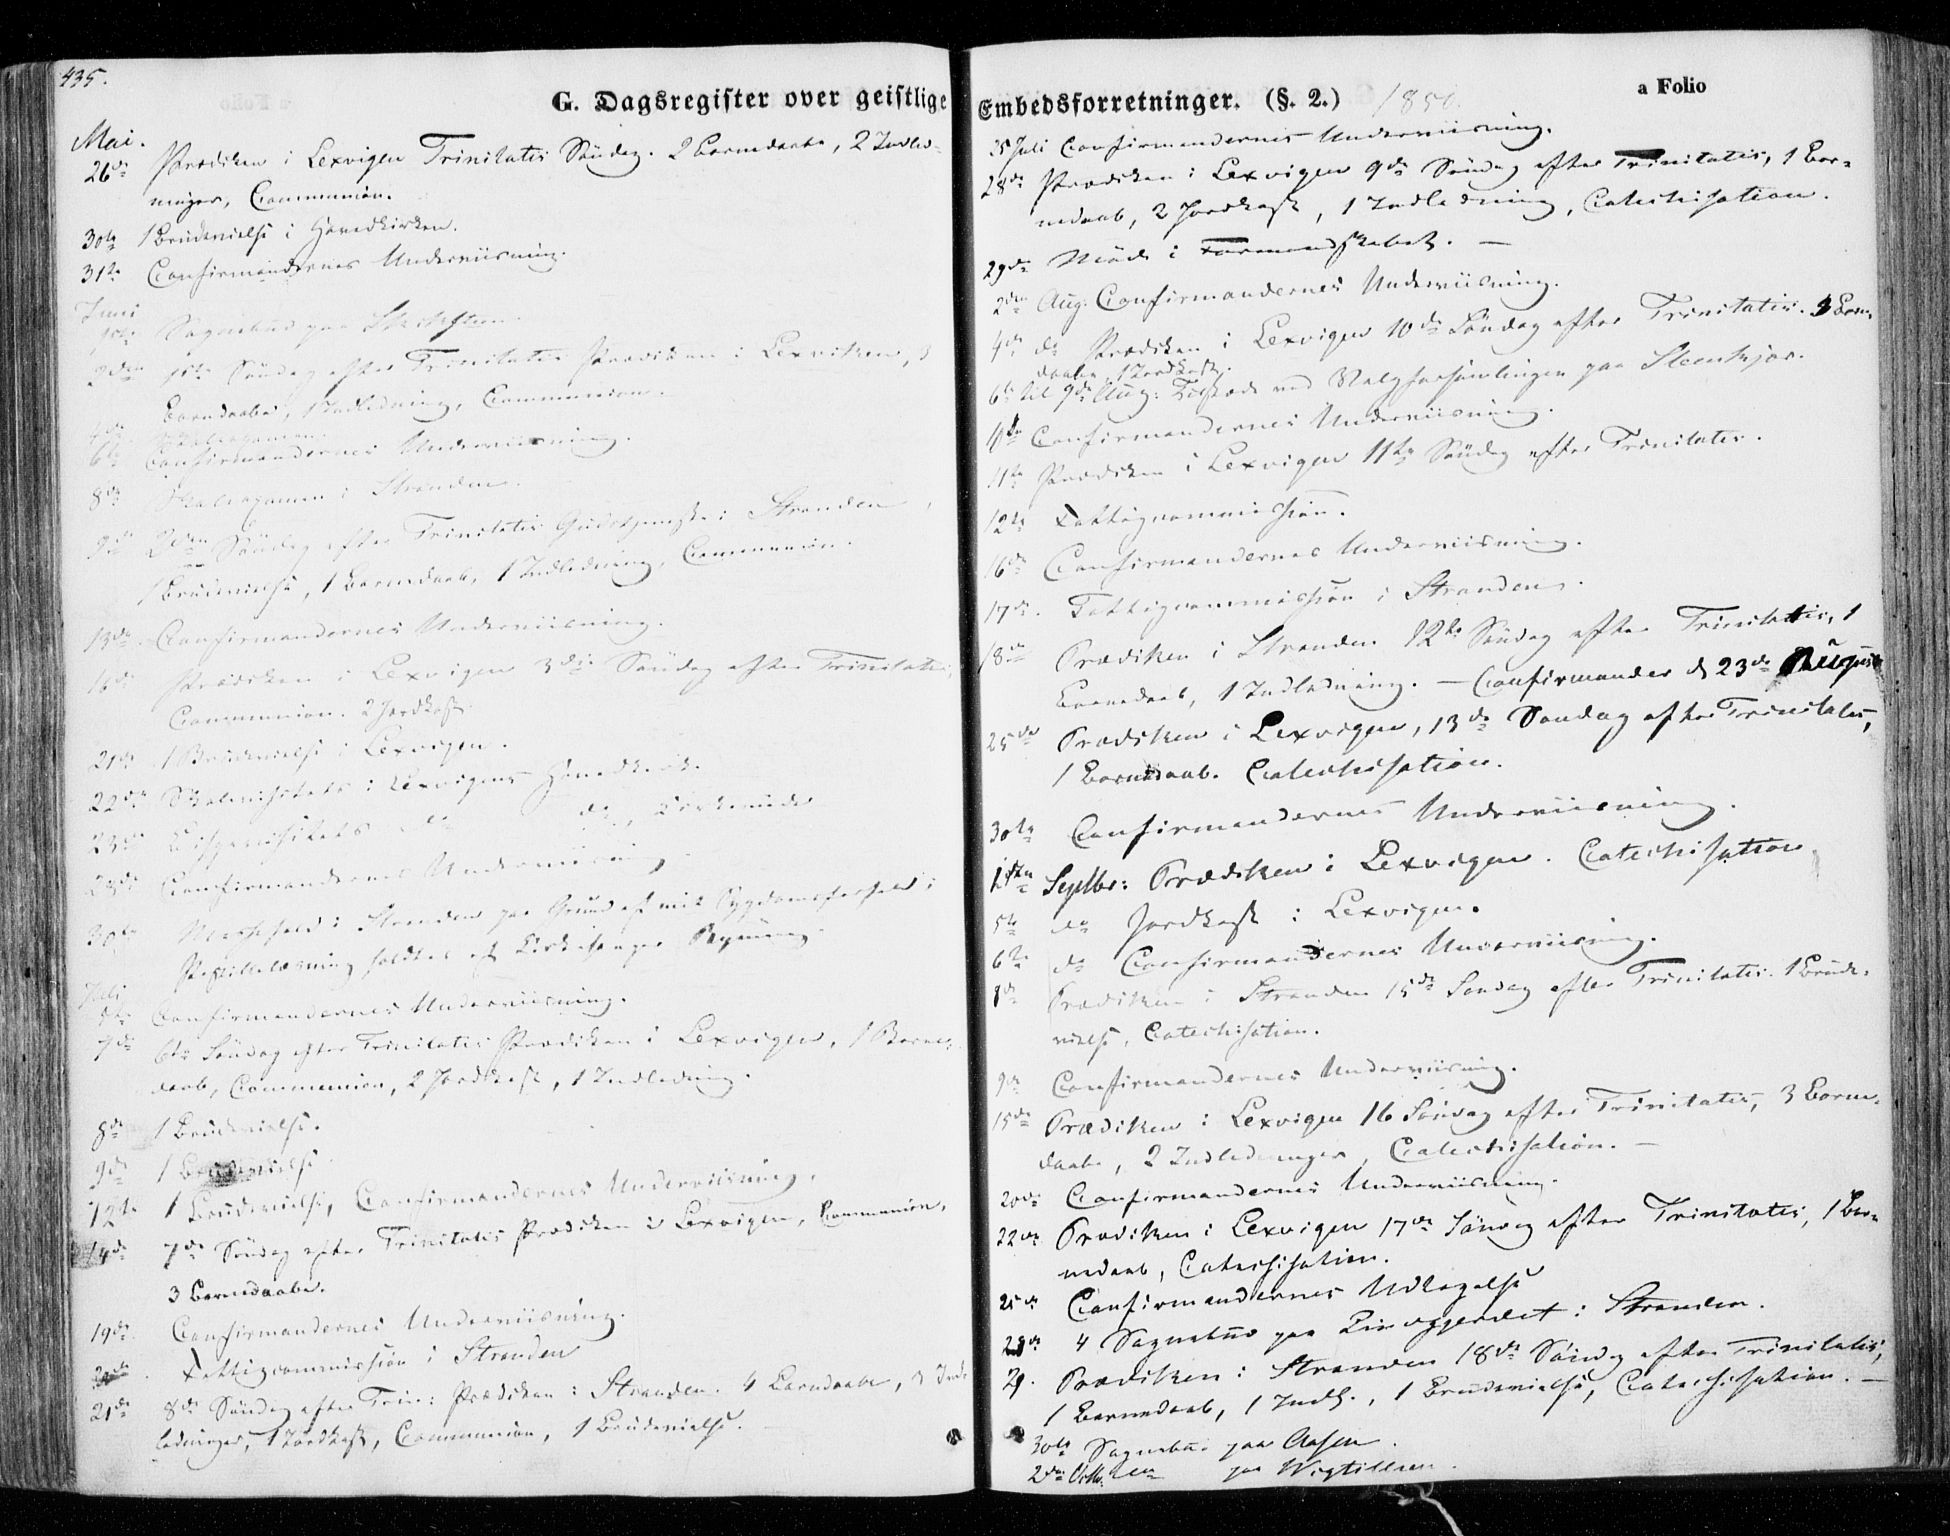 435.
G. Dagsregister over geistlige
Mai.
26de Prædiken i Lexvigen Trinitatis Söndag. 2 Barnedaabe, 2 Indled-
ninger, Communion.
30te 1 Brudevielse i Hovedkirken.
31te Confirmandernes Underviisning.
Juni
1ste Sognebud paa
2den 1ste Söndag efter Trinitatis Prædiken i Lexviken, 3
Barnedaabe, 1 Indledning, Communion.
4de
6te Confirmandernes Underviisning.
8de Skoleexamen i Stranden.
9de 2den Söndag efter Trinitatis Gudstjeneste i Stranden,
1 Brudevielse, 1 Barnedaab, 1 Indledning, Communion.
13de Confirmandernes Underviisning.
16de Prædiken i Lexvigen 3die Söndag efter Trinitatis,
Communion. 2 Jordkast.
21de 1 Brudevielse i Lexvigen.
22de Skolevisitats i Lexvigens Hovedkirk.
23de Bispevisitats do do,
28de Confirmandernes Underviisning
30te Messefald i Stranden paa Grund af mit Sygdomsforfald;
Postillelæsning holdtes af Kirkesanger
Juli
5te Confirmandernes Underviisning.
7de 6te Söndag efter Trinitatis Prædiken i Lexvigen, 1 Barne-
daab, Communion, 2 Jordkast, 1 Indledning.
8de 1 Brudevielse.
9de 1 Brudevielse
12te 1 Brudevielse, Confirmandernes Underviisning.
14de 7de Söndag efter Trinitatis Prædiken i Lexvigen, Communion,
3 Barnedaabe.
19de Confirmandernes Underviisning.
20de Fattigcommission i Stranden
21de 8de Söndag efter Trin: Prædiken i Stranden. 4 Barndaabe, 3 Ind-
ledninger, 1 Jordkast, Communion, 1 Brudevielse.
Embedsforretninger. (§. 2.) 1850.
a Folio
25 Juli Confirmandernes Underviisning.
28de Prædiken i Lexvigen 9de Söndag efter Trinitatis, 1 Bar-
nedaab, 2 Jordkast, 1 Indledning, Catechisation.
29de Möde i Formandskabet. —
2den Aug: Confirmandernes Underviisning.
4de do Prædiken i Lexvigen 10de Söndag efter Trinitatis. 3 Barne-
daabe, 1 Jordkast.
6te til 9de Aug: Tilstede ved Valgforsamlingen paa Steenkjær.
Confirmandernes Underviisning.
11te Prædiken i Lexvigen 11te Söndag efter Trinitatis.
12te Fattigcommission.
16de Confirmandernes Underviisning.
17de. Fattigcommission i Stranden.
18de Prædiken i Stranden 12te Söndag efter Trinitatis, 1
Barnedaab, 1 Indledning. — Confirmander d 23de August
25de Prædiken i Lexvigen, 13de Söndag efter Trinitatis,
1 Barnedaab. Catechisation.
30te Confirmandernes Underviisning.
1ste Septbr: Prædiken i Lexvigen. Catechisation
5te do Jordkast i Lexvigen.
6te do Confirmandernes Underviisning.
8de Prædiken i Stranden 15de Söndag efter Trinitatis. 1 Brude-
vielse, Catechisation.
9de Confirmandernes Underviisning.
15de Prædiken i Lexvigen 16 Söndag efter Trinitatis, 3 Barne-
daabe, 2 Indledninger, Catechisation. —
20de Confirmandernes Underviisning.
22de Prædiken i Lexvigen 17de Söndag efter Trinitatis, 1 Bar-
nedaab, Catechisation.
25de Confirmandernes Udtagelse
28de 4 Sognebud paa i Stranden.
29. Prædiken i Stranden 18de Söndag efter Trinitatis,
1 Barnedaab, 1 Indl., 1 Brudevielse, Catechisation. —
30te Sognebud paa Aasen.
2den Octbr. do paa